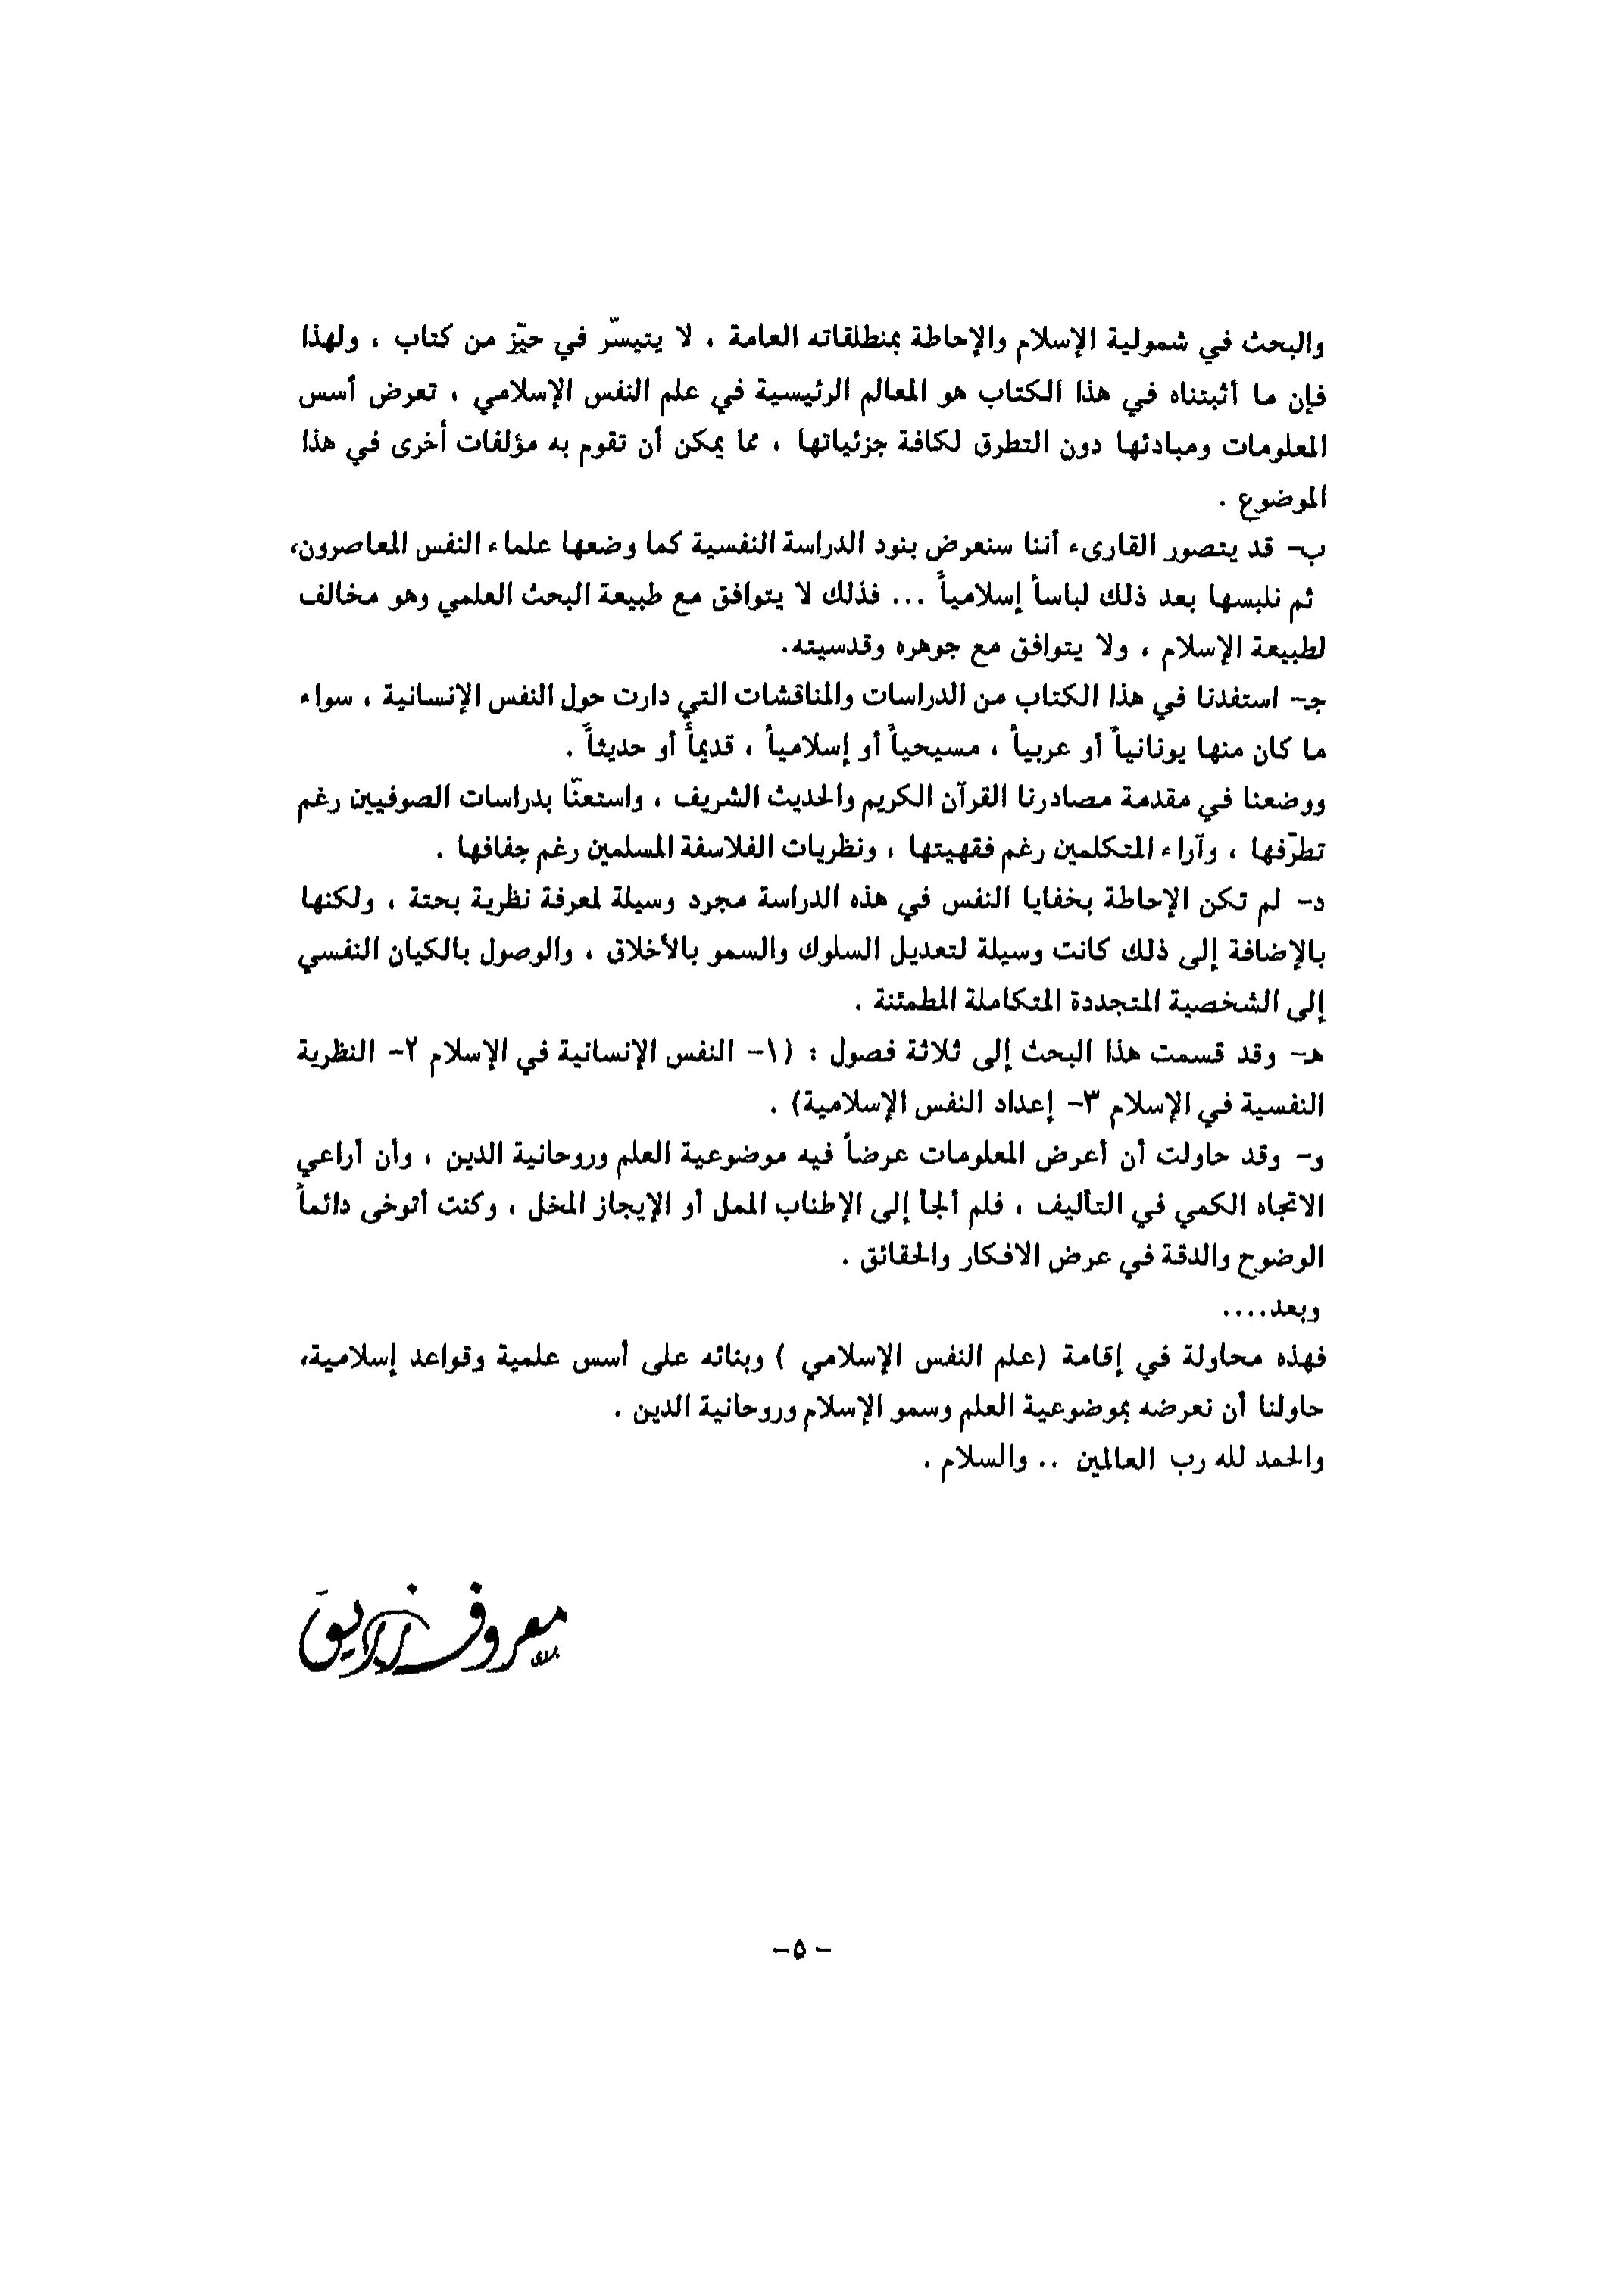 والبحث في شمولية الإسلام والإحاطة بمنطلقاته العامة ، لا يتيسّر في حيّز من كتاب ، ولهذا
فإن ما أثبتناه في هذا الكتاب هو المعالم الرئيسية في علم النفس الإسلامي ، تعرض أسس
المعلومات ومبادئها دون التطرق لكافة جزئياتها ، مما يمكن أن تقوم به مؤلفات أخرى في هذا
الموضوع .
ب- قد يتصور القارىء أننا سنعرض بنود الدراسة النفسية كما وضعها علماء النفس المعاصرون،
ثم نلبسها بعد ذلك لباساً إسلامياً ... فذلك لا يتوافق مع طبيعة البحث العلمي وهو مخالف
لطبيعة الإسلام ، ولا يتوافق مع جوهره وقدسيته.
جـ- استفدنا في هذا الكتاب من الدراسات والمناقشات التي دارت حول النفس الإنسانية ، سواء
ما كان منها يونانياً أو عربياً ، مسيحياً أو إسلامياً ، قديماً أو حديثاً .
ووضعنا في مقدمة مصادرنا القرآن الكريم والحديث الشريف ، واستعنّا بدراسات الصوفيين رغم
تطرّفها ، وآراء المتكلمين رغم فقهيتها ، ونظريات الفلاسفة المسلمين رغم جفافها .
د- لم تكن الإحاطة بخفايا النفس في هذه الدراسة مجرد وسيلة لمعرفة نظرية بحتة ، ولكنها
بالإضافة إلى ذلك كانت وسيلة لتعديل السلوك والسمو بالأخلاق ، والوصول بالكيان النفسي
إلى الشخصية المتجددة المتكاملة المطمئنة .
هـ- وقد قسمت هذا البحث إلى ثلاثة فصول : (١- النفس الإنسانية في الإسلام ٢- النظرية
النفسية في الإسلام ٣- إعداد النفس الإسلامية) .
و- وقد حاولت أن أعرض المعلومات عرضاً فيه موضوعية العلم وروحانية الدين ، وأن أراعي
الاتجاه الكمي في التأليف ، فلم ألجأ إلى الإطناب الممل أو الإيجاز المخل ، وكنت أتوخى دائماً
الوضوح والدقة في عرض الافكار والحقائق .
وبعد....
فهذه محاولة في إقامة (علم النفس الإسلامي ) وبنائه على أسس علمية وقواعد إسلامية،
حاولنا أن نعرضه بموضوعية العلم وسمو الإسلام وروحانية الدين .
والحمد لله رب العالمين .. والسلام .
معروف زريق
- ٥-